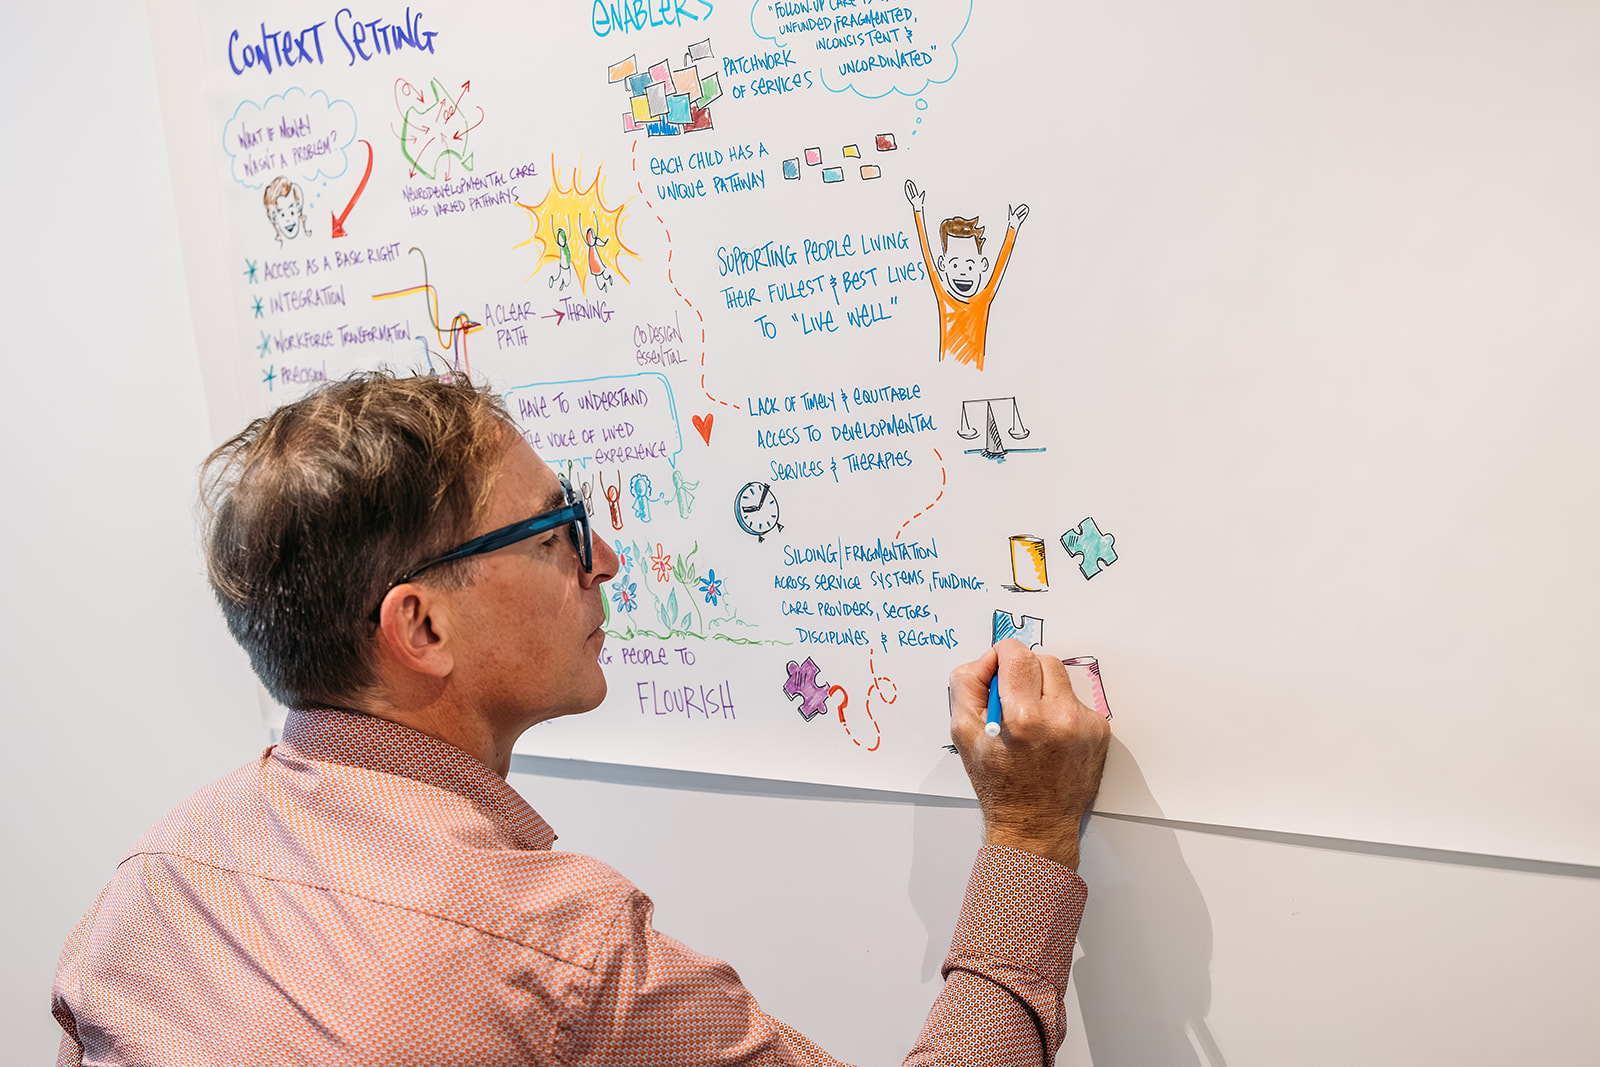 CONTEXT SETTING
WHAT IF MONEY
WASN'T A PROBLEM?
NEURODEVELOPMENTAL CARE
HAS VARIED PATHWAYS
ACCESS AS A BASIC RIGHT
INTEGRATION
WORKFORCE TRANSFORMATION
PRECISION
A CLEAR
PATH
THRIVING
CO DESIGN
ESSENTIAL
HAVE TO UNDERSTAND
THE VOICE OF LIVED
EXPERIENCE
PEOPLE TO
FLOURISH
ENABLERS
"FOLLOW-UP CARE IS
UNFUNDED, FRAGMENTED,
INCONSISTENT &
UNCORDINATED"
PATCHWORK
OF SERVICES
EACH CHILD HAS A
UNIQUE PATHWAY
SUPPORTING PEOPLE LIVING
THEIR FULLEST & BEST LIVES
TO "LIVE WELL"
LACK OF TIMELY & EQUITABLE
ACCESS TO DEVELOPMENTAL
SERVICES & THERAPIES
SILOING/FRAGMENTATION
ACROSS SERVICE SYSTEMS, FUNDING,
CARE PROVIDERS, SECTORS,
DISCIPLINES & REGIONS
?